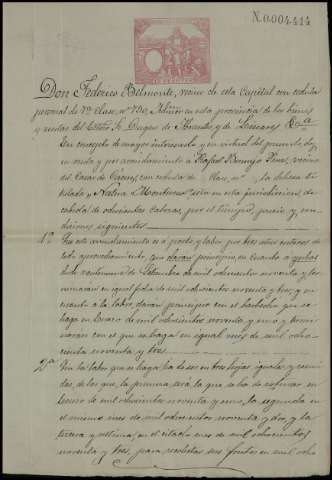 N.0.004,414
Don Federico Belmonte, vecino de esta Capital con cedula
personal de 7ª clase, nº 790, Admor en esta provincia de los bienes
y rentas del Estado Sr. Duque de Abrantes y de Linares &ª
En concepto de mayor interesado y en virtud del presente, da
en renta y por arrendamiento a Rafael Bermejo Perez, vecino
del Casar de Cáceres, con cedula de clase, nº la dehesa ti-
tulada Natera Monteras sita en esta jurisdiccion, de
cabida de ochocientas cabezas, por el tiempo, precio y con-
diciones siguientes
1ª Este arrendamiento es a pasto y labor, por tres años enteros de
solo aprovechamiento, que daran principio, en cuanto a yerbas
de de Setiembre de mil ochocientos noventa y ter-
minaran en igual fecha de mil ochocientos noventa y tres, y en
cuanto a la labor, daran principio con el barbecho que se
haga en Enero de mil ochocientos noventa y uno y termi-
naran con el que se haga en igual mes de mil ocho-
cientos noventa y tres
2ª En la labor que se haga ha de ser en tres hojas iguales y segui-
das, de las que, la primera, será la que se ha de en
Enero de mil ochocientos noventa y uno, la segunda en
el mismo mes de mil ochocientos noventa y dos, y la
tercera y ultima, en el citado mes de mil ochocientos
noventa y tres, para recolectar sus frutos en mil ocho